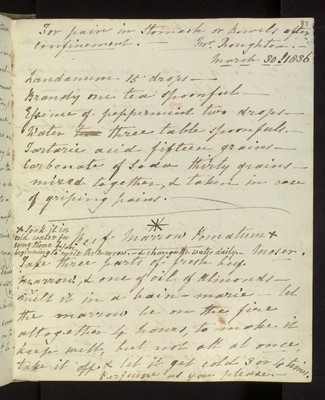 For pain in Stomach or Bowels after
confinement. — Mr. Roughton. —
March 30th 1836
Laudanum 15 drops —
Brandy one tea spoonful —
Essence of peppermint two drops —
Water three table spoonfuls. —
Tartaric acid fifteen grains —
Carbonate of Soda thirty grains —
mixed together, & taken in case
of griping pains. —
+ Soak it in
cold water for
some time before
beginning to melt the marrow & change the water daily. —
Beef Marrow Pomatum +
Moser.
Take three parts of fresh beef
marrow, & one of oil of Almonds —
melt it in a bain-marie — let
the marrow be on the fire
altogether 4 hours, to make it
keep well, but not all at once,
take it off & let it get cold 3 or 4 times.
Perfume as you please —